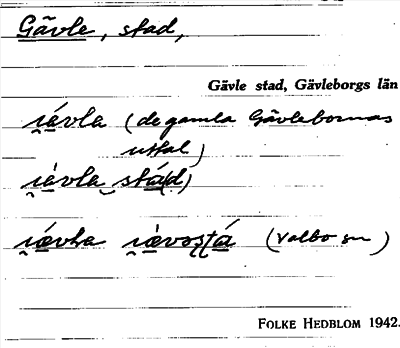 Gävle, stad,
Gävle stad, Gävleborgs län
i̯ávla (de gamla Gävlebornas
uttal)
i̯àvla stá(d)
(Valbo sn)
FOLKE HEDBLOM 1942.